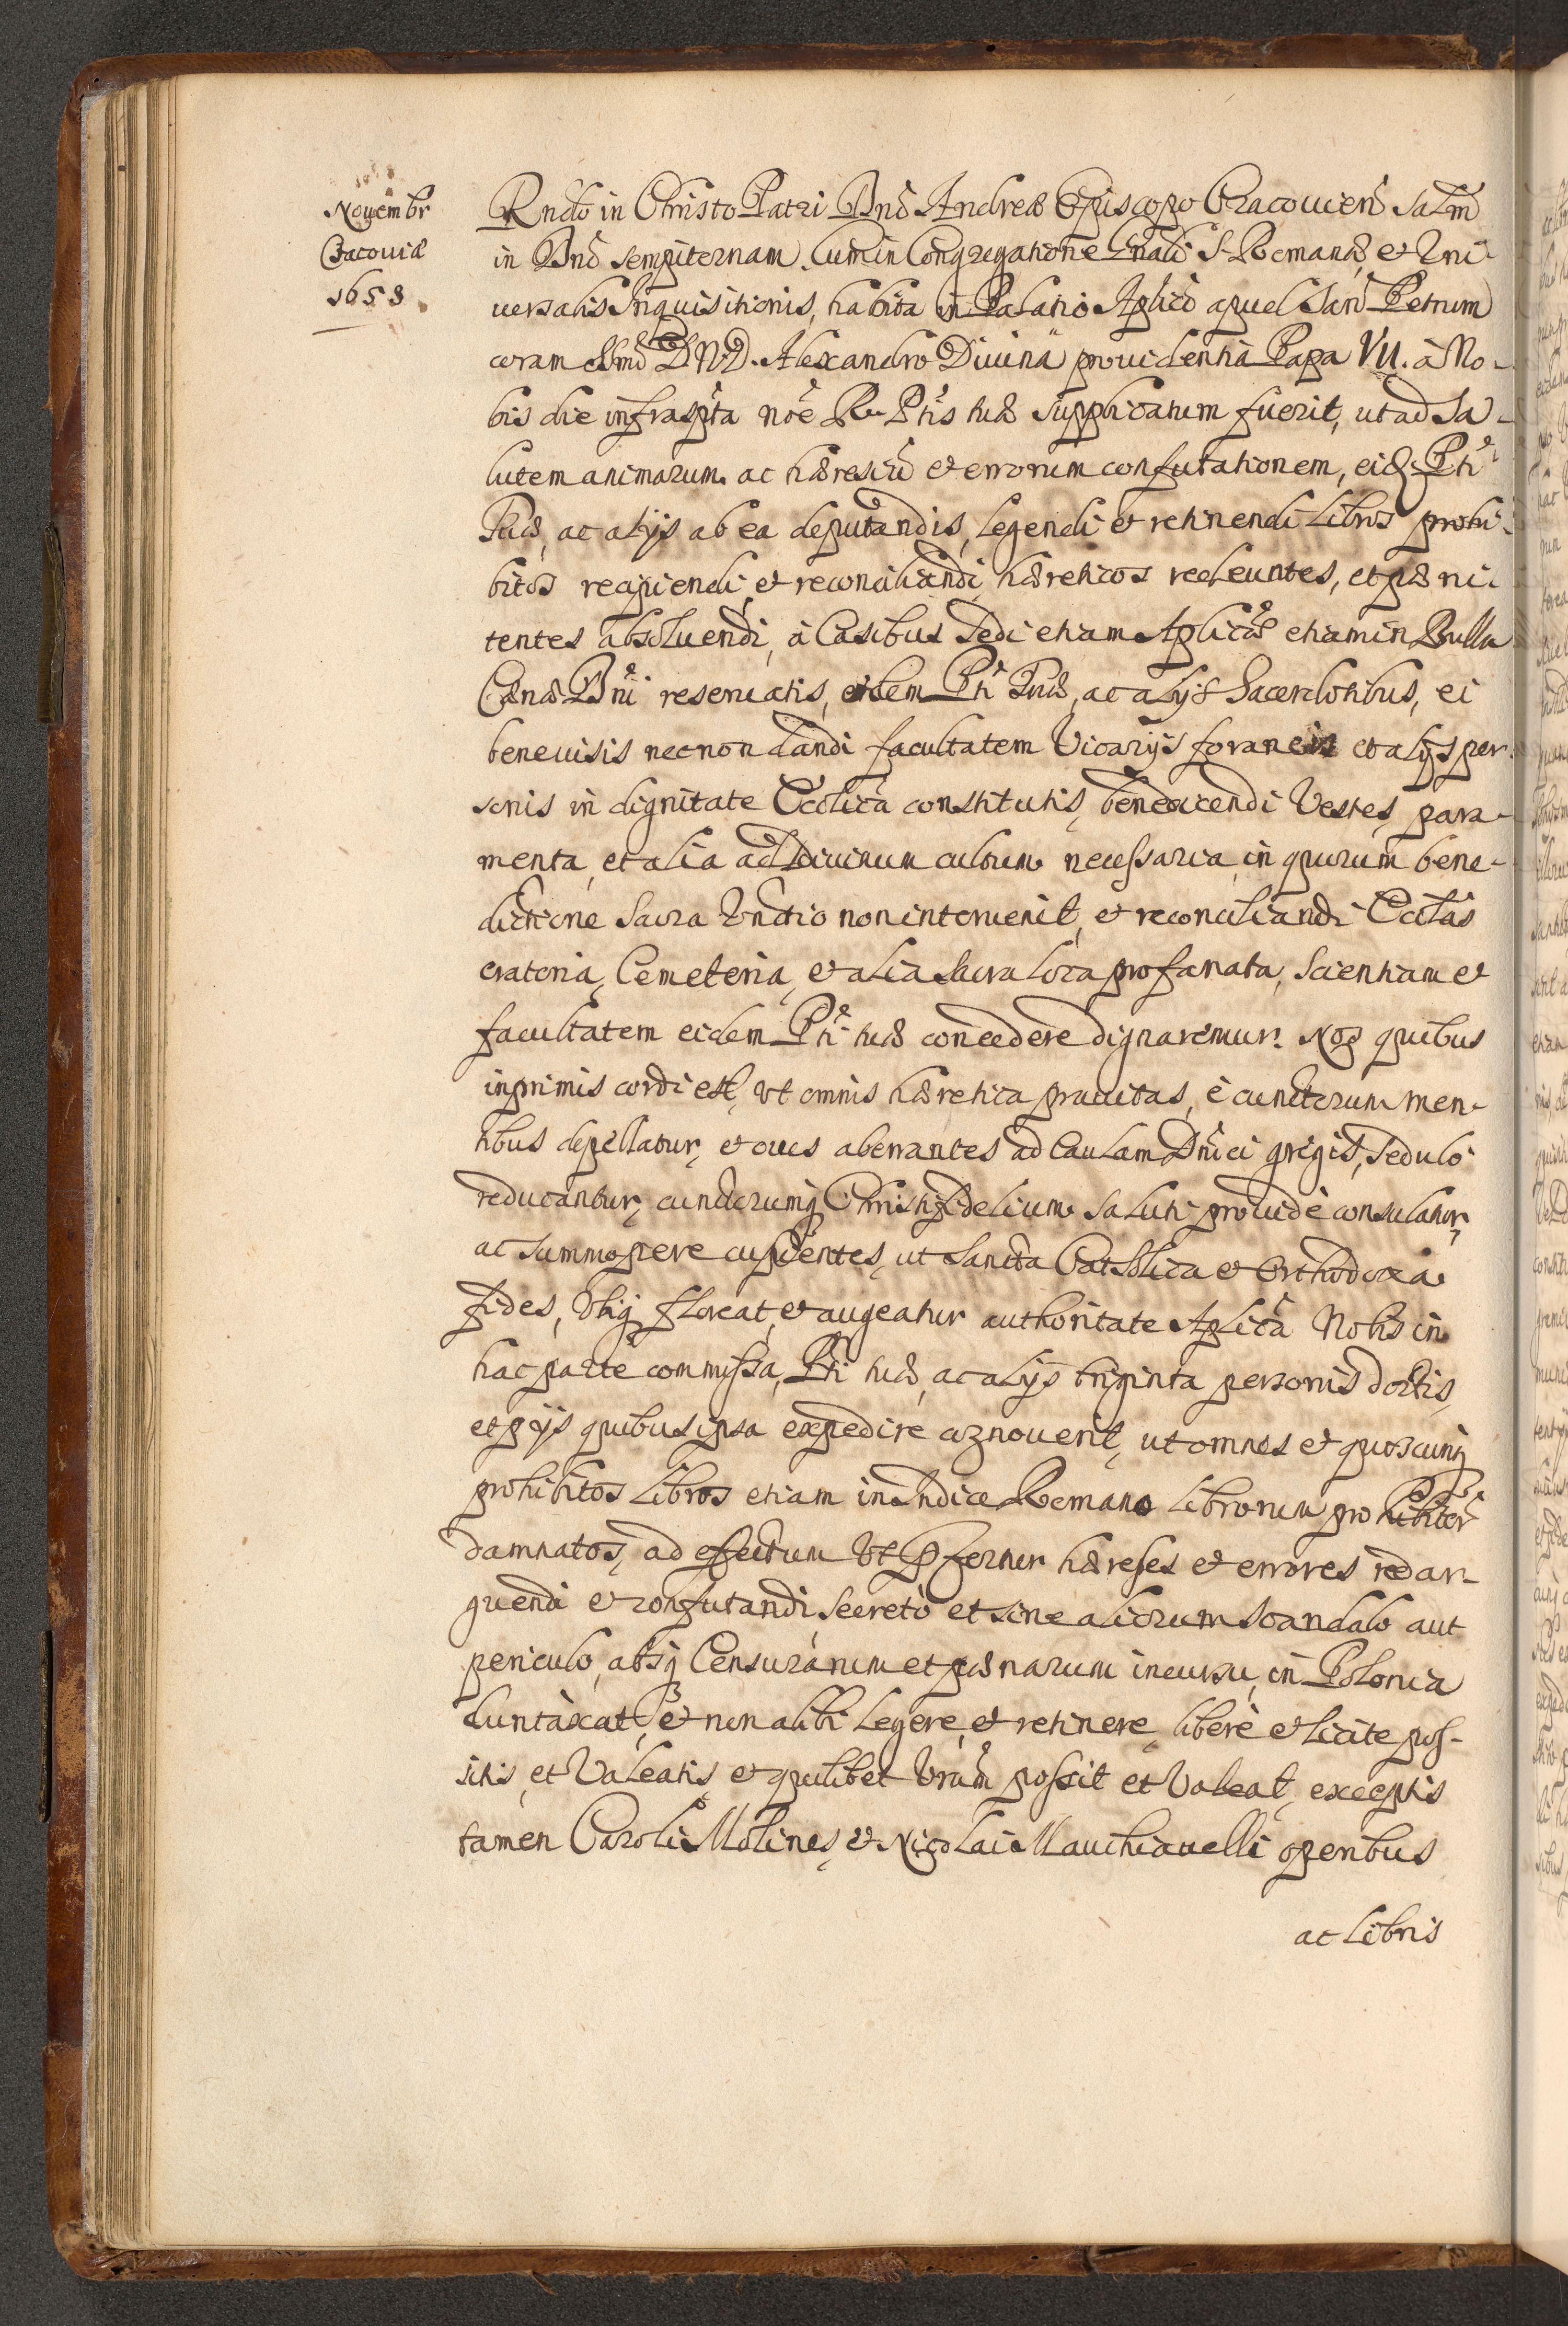 Novembr
Cracoviæ
1658
Rndo in Christo Patri Dno Andreæ Episcopo Cracovien Salm
in Dno sempiternam. Cum in Congregatione Gnali S. Romanæ, et Uni-
versalis Inquisitionis, habita in Palatio Aplico apud Sanc Petrum
coram SSmo D. N. D. Alexandro Divina providentia Papa VII. à No-
bis die infrascpta noe R. Ptis tuæ supplicatum fuerit, ut ad Sa-
lutem animarum ac hæresiu et errorum confutationem, eid. Pti
Tuæ, ac alijs ab ea deputandis, legendi et retinendi Libros prohi-
bitos recipiendi et reconciliandi hæreticos redeuntes, et pæni-
tentes absolvendi, à Casibus Sedi etiam Aplicæ etiam in Bulla
Cænæ Dni reservatis, eidem Pti Tuæ, ac alijs Sacerdotibus, ei
benevisis necnon dandi facultatem Vicarijs foraneis et alijs per-
sonis in dignitate Ecclica constitutis, benedicendi Vestes, para-
menta, et alia ad Divinum cultum necessaria, in quorum bene-
dictione Sacra Unctio non intervenit, et reconciliandi Eccles
oratoria, Cemeteria, et alia Sacra Loca profanata, Scientiam et
facultatem eidem Pti tuæ concedere dignaremur. Nos quibus
inprimis cordi est, ut omnis hæretica pravitas, è cunctorum men-
tibus depellatur, et oves aberrantes ad Caulam Dnici gregis, sedulò
reducantur, cunctorumq Christifidelium Saluti providè consulatur,
ac summopere cupientes, ut Sancta Catholica et Orthodoxa
fides, Ubiq floreat, et augeatur authoritate Aplica Nobis in
hac parte commissa, Pti tuæ, ac alijs triginta personis doctis,
et pijs quibus ipsa expedire agnoverit, ut omnes et quoscunq
prohibitos Libros etiam in Indice Romano Librorum prohibitor
damnatos, ad effectum Ut Pfertur hæreses et errores redar-
guendi et confutandi, Secretò et sine aliorum Scandalo aut
periculo, absq Censurarum et pænarum incursu, in Polonia
duntàxat, et non alibi legere, et retinere, liberè et licite pos-
sitis, et Valeatis, et quilibet Vrum possit et Valeat, exceptis
tamen Caroli Molines, et Nicolai Machiavelli operibus
ac Libris